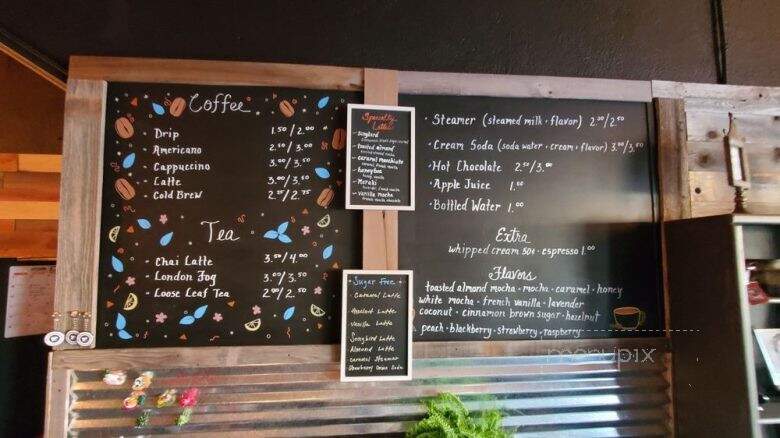 Coffee
Drip 1.50/2.00
Americano 2.50/3.00
Cappuccino 3.00/3.50
Latte 3.00/3.50
Cold Brew
Tea
Chai Latte 3.50/4.00
London Fog 3.00/3.50
Loose Leaf Tea 2.00/2.50
Specialty
Songbird
toasted almond
caramel macchiato
honeybee
Meraki
vanilla mocha
Sugar Free
Caramel Latte
Hazelnut Latte
Vanilla Latte
Songbird Latte
Almond Latte
Caramel Steamer
Strawberry Soda
Steamer (steamed milk + flavor) 2.00/2.50
Cream Soda (soda water + cream + flavor) 3.00/3.50
Hot Chocolate 2.50/3.00
Apple Juice 1.00
Bottled Water 1.00
Extra
whipped cream 50¢ · espresso 1.00
Flavors
toasted almond mocha · mocha · caramel · honey
white mocha · french vanilla · lavender
coconut · cinnamon brown sugar · hazelnut
peach · blackberry · strawberry · raspberry
menupix